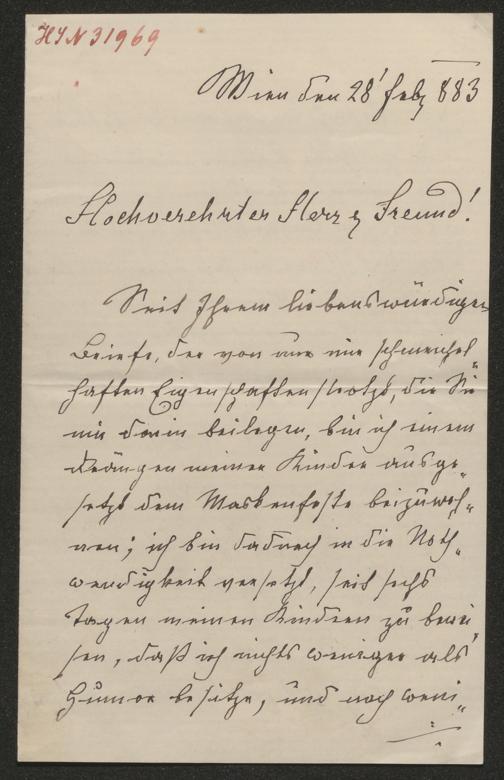 HIN 31969
Wien den 28' Feb 883
Hochverehrter Herr & Freund!
Seit Ihrem liebenswürdigen
Briefe, der von nur mir schmeichel-
haften Eigenschaften strotzt, die Sie
mir darin beilegen, bin ich einem
Drängen meiner Kinder ausge-
setzt dem Maskenfeste beizuwoh-
nen; ich bin dadurch in die Noth-
wendigkeit versetzt, seit sechs
Tagen meinen Kindern zu bewei-
sen, daß ich nichts weniger als
Humor besitze, und noch weni-